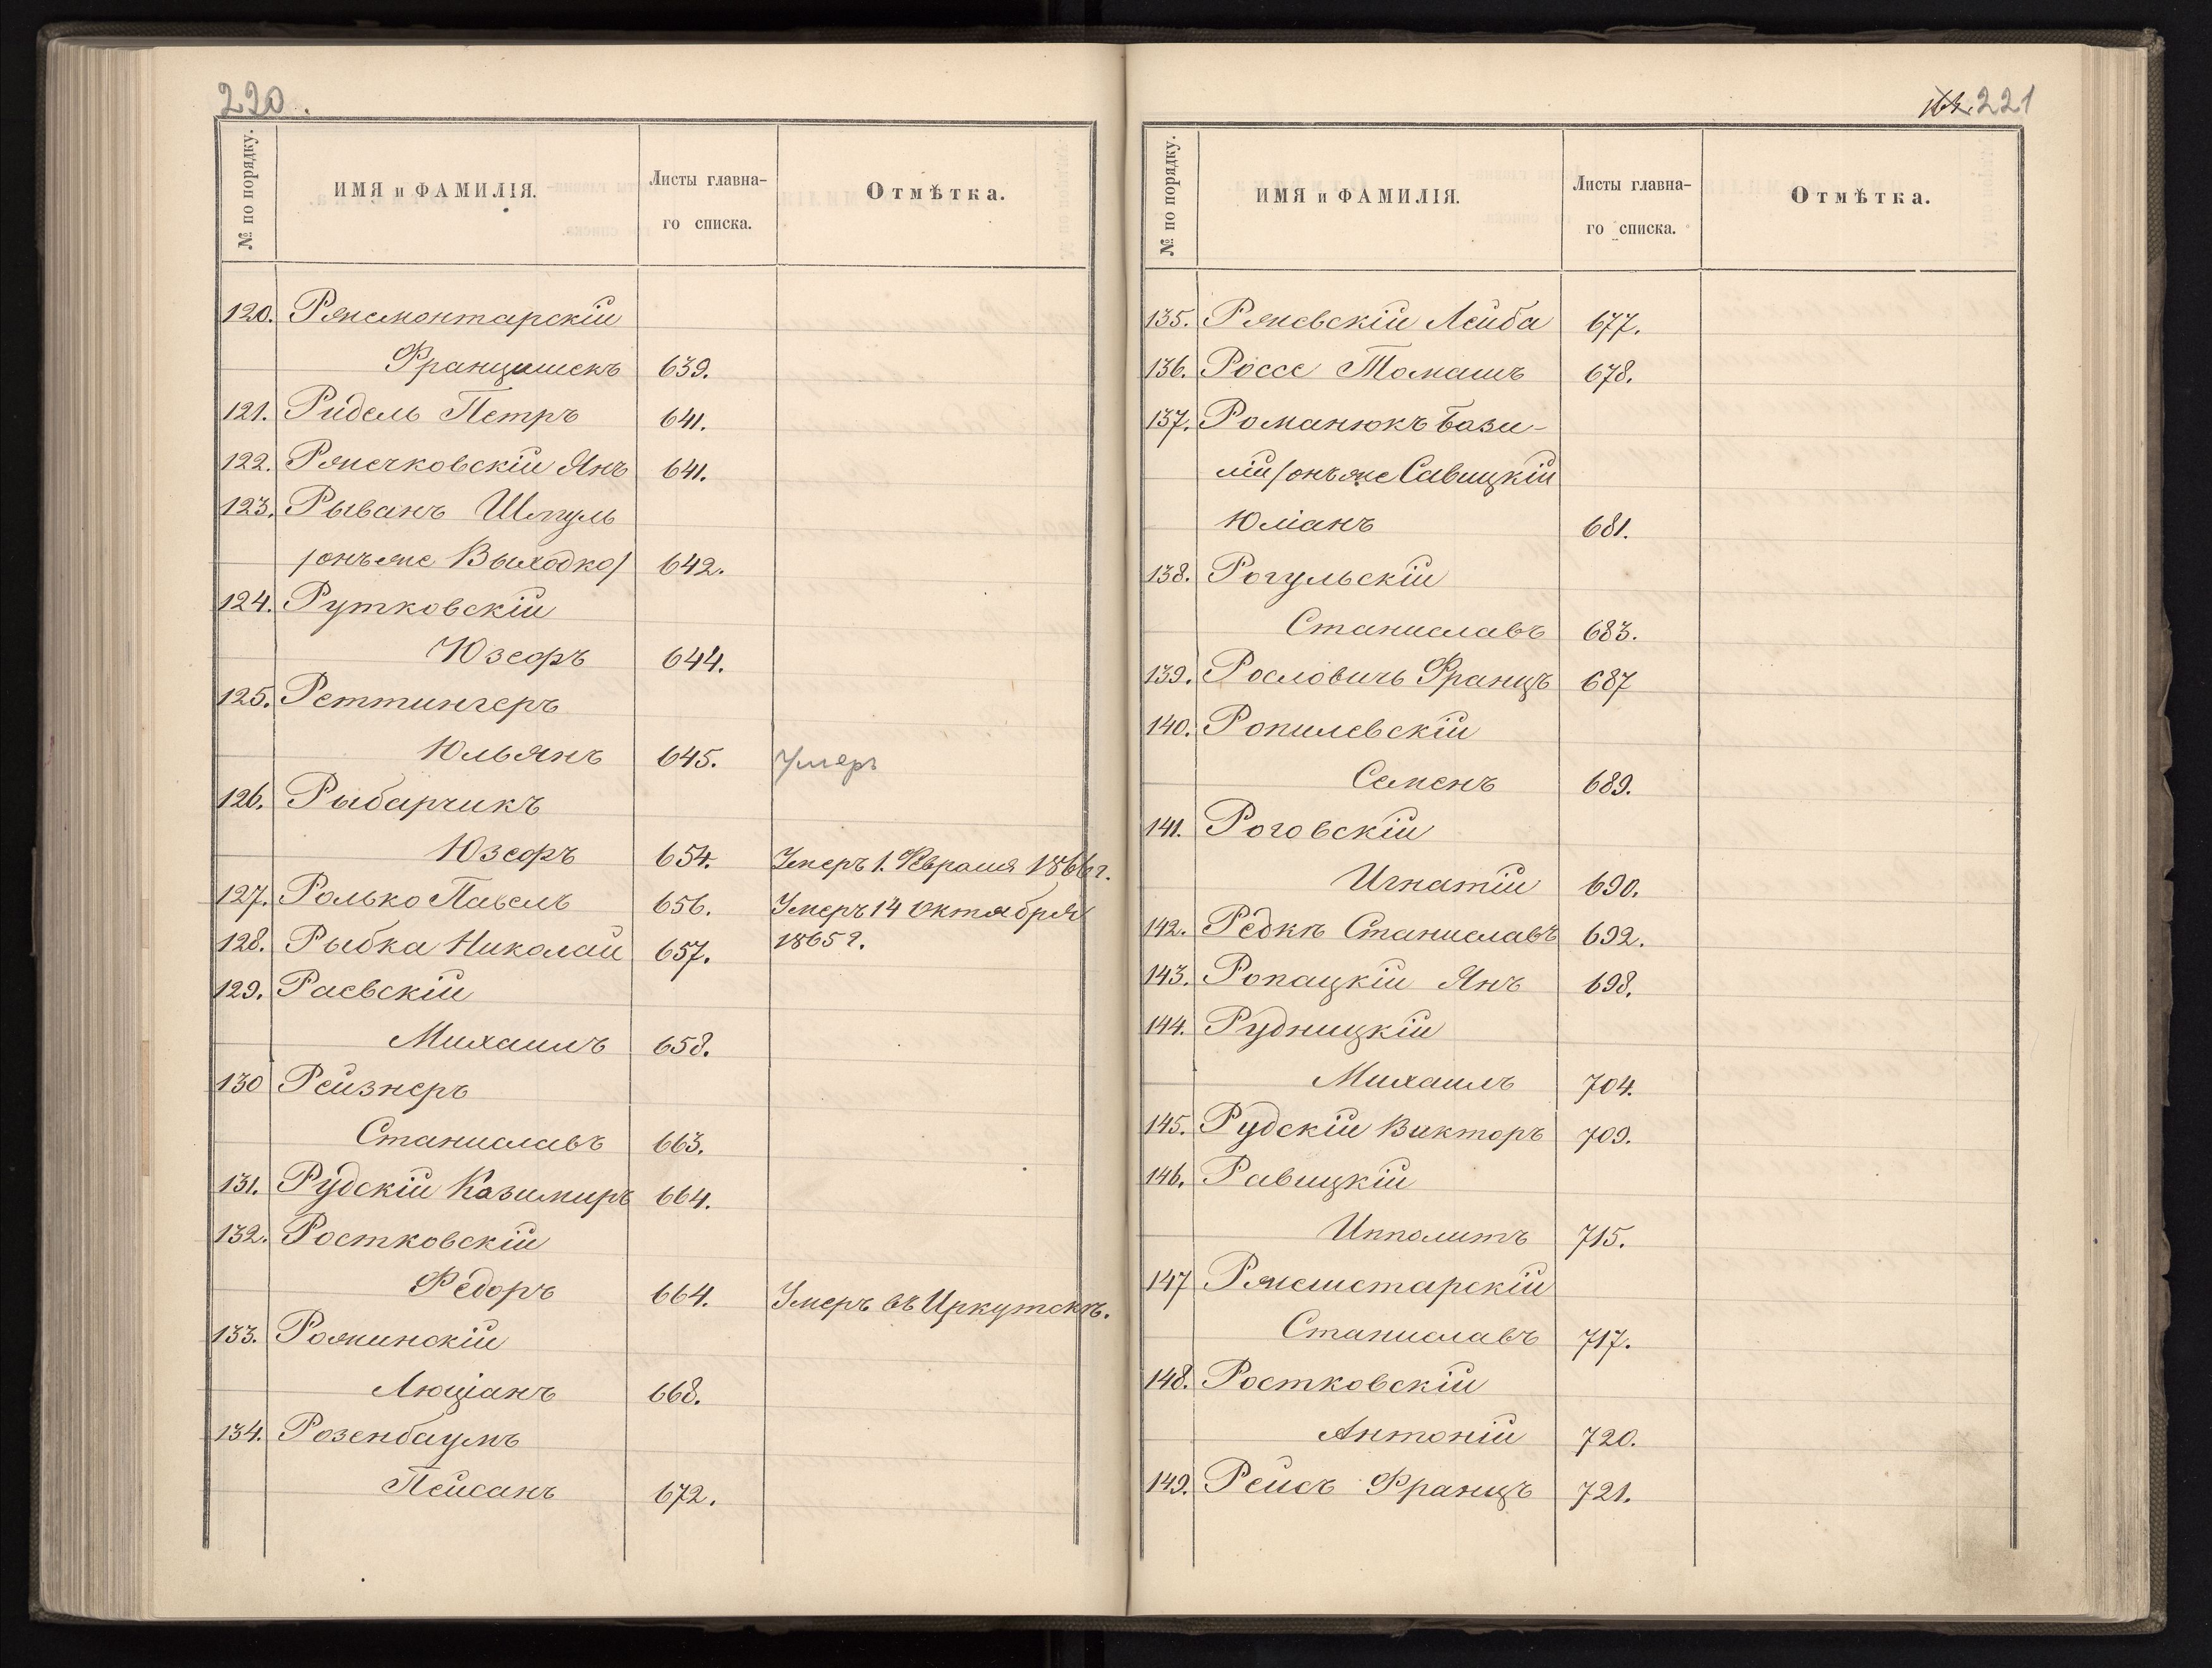 220.
№ по порядку.
ИМЯ и ФАМИЛІЯ.
Листы главна-
го списка.
Отмѣтка.
120. Ржемонтарскій
Францишекъ 639.
121. Ридель Петръ 641.
122. Ржечковскій Янъ 641.
123. Рыванъ Шмуль
/онъ же Выходко/ 642.
124. Рутковскій
Юзефъ 644.
125. Реттингеръ
Юльянъ 645. Умеръ
126. Рыбарчикъ
Юзефъ 654. Умеръ 1. Февраля 1866 г.
127. Ролько Павелъ 656. Умеръ 14 Октября
128. Рыбка Николай 657. 1865 г.
129. Раевскій
Михаилъ 658.
130 Рейзнеръ
Станиславъ 663.
131. Рудскій Казимиръ 664.
132. Ростковскій
Федоръ 664. Умеръ въ Иркутскѣ.
133. Рожинскій
Люціанъ 668.
134. Розенбаумъ
Пейсанъ 672.
221
№ по порядку.
ИМЯ и ФАМИЛІЯ.
Листы главна-
го списка.
Отмѣтка.
135. Ржевскій Лейба 677.
136. Россе Томашъ 678.
137. Романюкъ Бази-
лій /онъ же Савицкій
Юліанъ 681.
138. Рогульскій
Станиславъ 683.
139. Рословичь Францъ 687
140. Ропилевскій
Семенъ 689.
141. Роговскій
Игнатій 690.
142. Редкѣ Станиславъ 692.
143. Ропацкій Янъ 698.
144. Рудницкій
Михаилъ 704.
145. Рудскій Викторъ 709.
146. Равицкій
Ипполитъ 715.
147 Ржешетарскій
Станиславъ 717.
148. Ростковскій
Антоній 720.
149. Рейсъ Францъ 721.